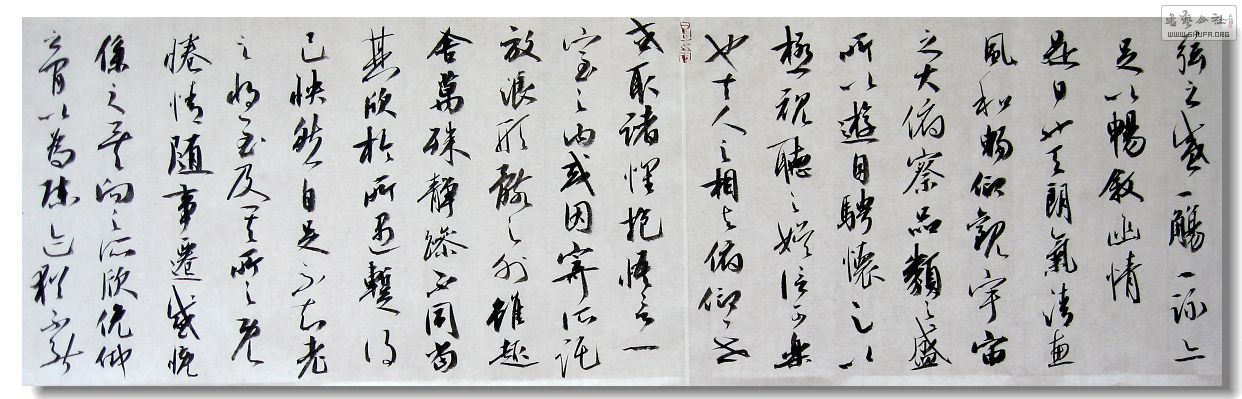 弦之盛一觴一詠亦
足以暢敘幽情
是日也天朗氣清惠
風和暢仰觀宇宙
之大俯察品類之盛
所以遊目騁懷足以
極視聽之娛信可樂
也夫人之相與俯仰一世
或取諸懷抱悟言一
室之內或因寄所託
放浪形骸之外雖趣
舍萬殊靜躁不同當
其欣於所遇暫得
己快然自足不知老
之將至及其所之既
惓情隨事遷感慨
係之矣向之所欣俛仰
之間以為陳迹猶不能
書藝公社
WWW.SHUFA.ORG